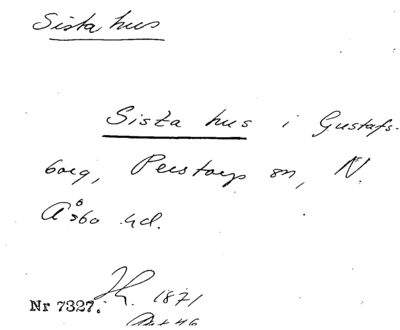 Sista hus
Sista hus i Gustafs-
borg, Perstorps sn, N.
Åsbo hd.
Nr 7327. 1871